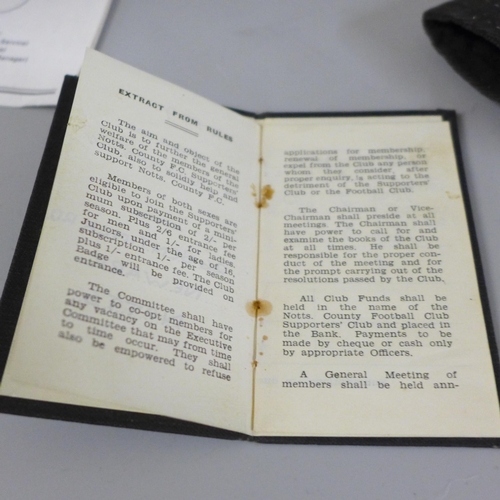 EXTRACT FROM RULES
The aim and object of the
Club is to further the general
welfare of the members of the
Notts. County F.C. Supporters'
Club, also to solidly help and
support Notts. County F.C.
Members of both sexes are
eligible to join the Supporters'
Club upon payment of a mini-
mum subscription of 2/- per
season. Plus 2/6 entrance fee
for men and 1/- for ladies.
Juniors, under the age of 16,
subscription 1/- per season
plus 1/- entrance fee. The Club
Badge will be provided on
entrance.
The Committee shall have
power to co-opt members for
any vacancy on the Executive
Committee that may from time
to time occur. They shall
also be empowered to refuse
applications for membership,
renewal of membership, or
expel from the Club any person
whom they consider, after
proper enquiry, is acting to the
detriment of the Supporters'
Club or the Football Club.
The Chairman or Vice-
Chairman shall preside at all
meetings. The Chairman shall
have power to call for and
examine the books of the Club
at all times. He shall be
responsible for the proper con-
duct of the meeting and for
the prompt carrying out of the
resolutions passed by the Club.
All Club Funds shall be
held in the name of the
Notts. County Football Club
Supporters' Club and placed in
the Bank. Payments to be
made by cheque or cash only
by appropriate Officers.
A General Meeting of
members shall be held ann-